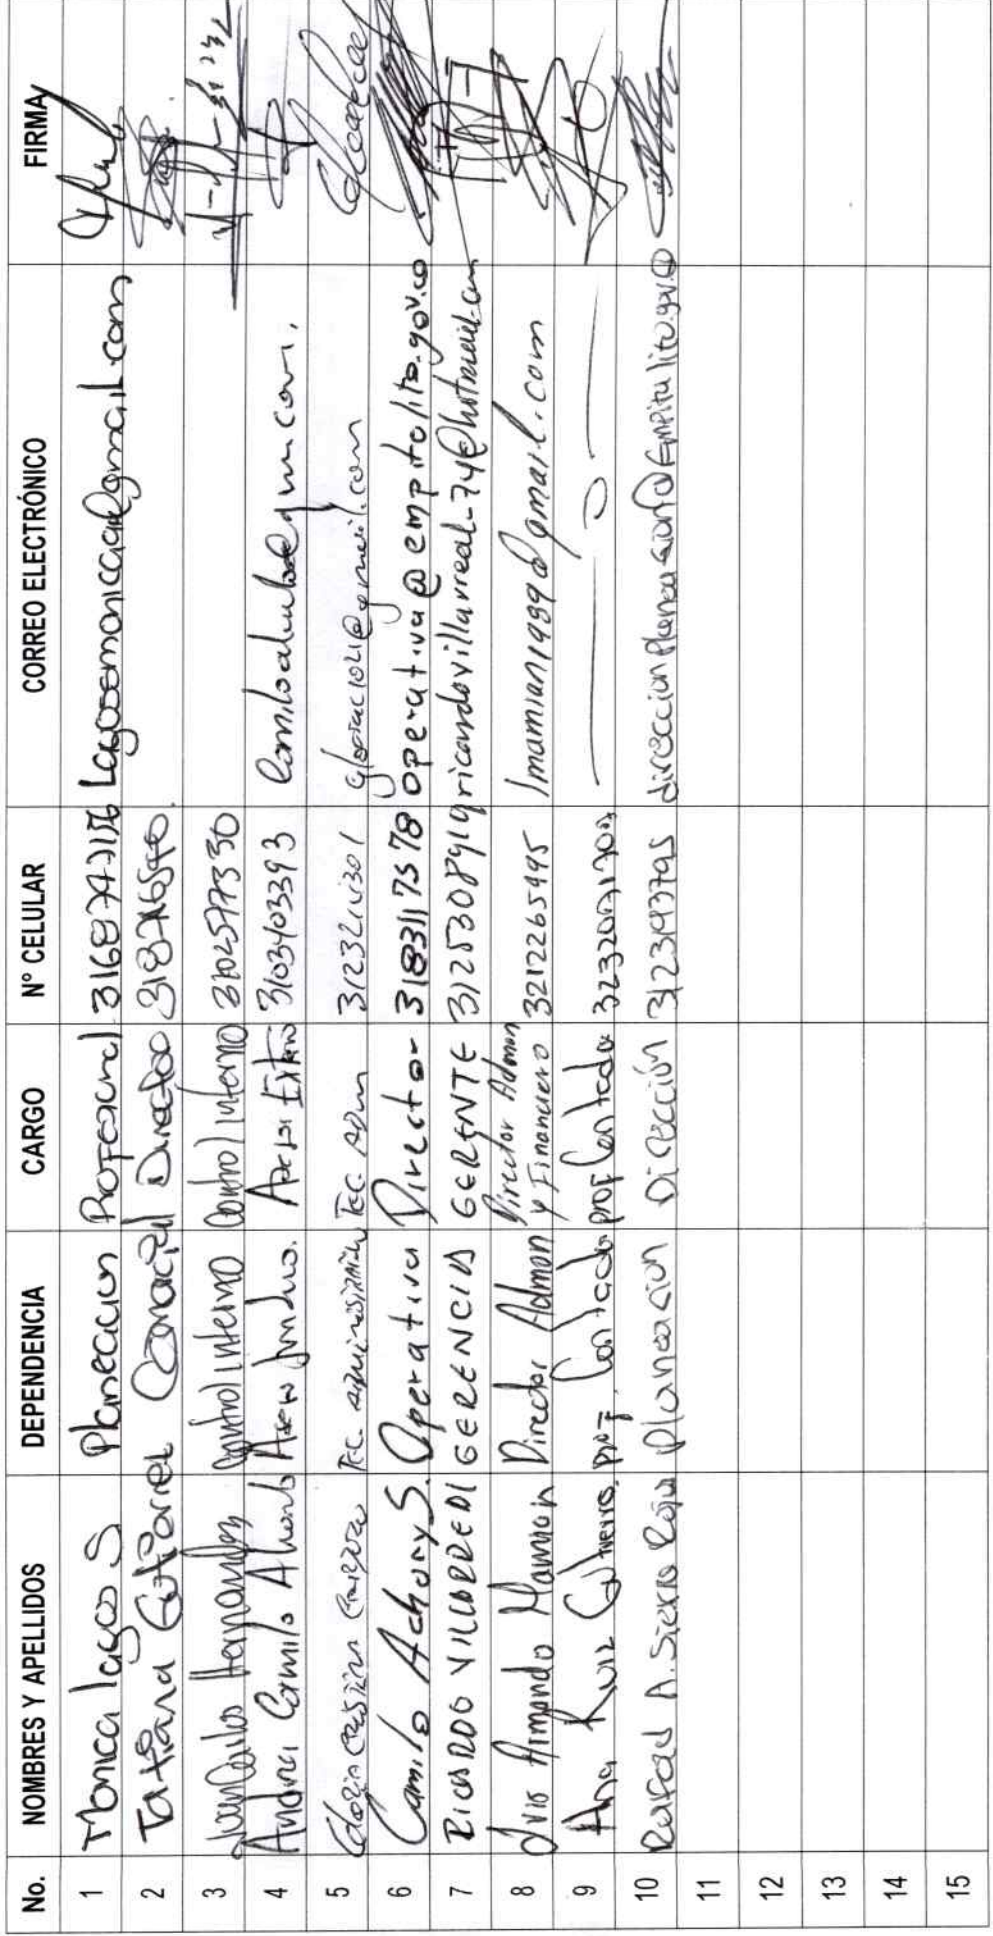 No. NOMBRES Y APELLIDOS DEPENDENCIA CARGO N° CELULAR CORREO ELECTRÓNICO FIRMA
1 Monica lagos S Planeacion Profesional 3168747116 Lagossmonica@gmail.com
2 Tatiana Gutierrez Comercial Director
3 Juan Carlos Hernandez Control interno Control interno 3102577330
4 Andres Camilo Asesor Juridico. Asesor Externo 3103403393
5 Gloria Cristina Tec. Administrativo Tec. Adm
6 Camilo Achury S. Operativa Director 3183117578 operativa@empitalito.gov.co
7 RICARDO VILLARREAL GERENCIA GERENTE 3125308919 ricardovillarreal-74@hotmail.com
8 Luis Armando Mamian Director Admon Director Admon
y Financiero 3212265495 lmamian1989@gmail.com
9 Ana Ruiz Gutierrez. prof. Contado prof Contado
10 Rafael A. Sierra Rojas planeacion Dirección 3123193795 direccionplaneacion@Empitalito.gov.co
11
12
13
14
15